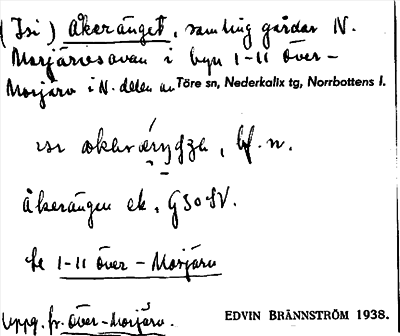 (Isi) Åkeränget, samling gårdar N.
Morjärvsavan i byn 1-11 över-
Morjärv i N. delen av Töre sn, Nederkalix tg, Norrbottens l.
bf. n.
Åkerängen ek, GSoSV.
Se 1-11 över - Morjärv
Uppg. fr. över-Morjärv.
EDVIN BRÄNNSTRÖM 1938.